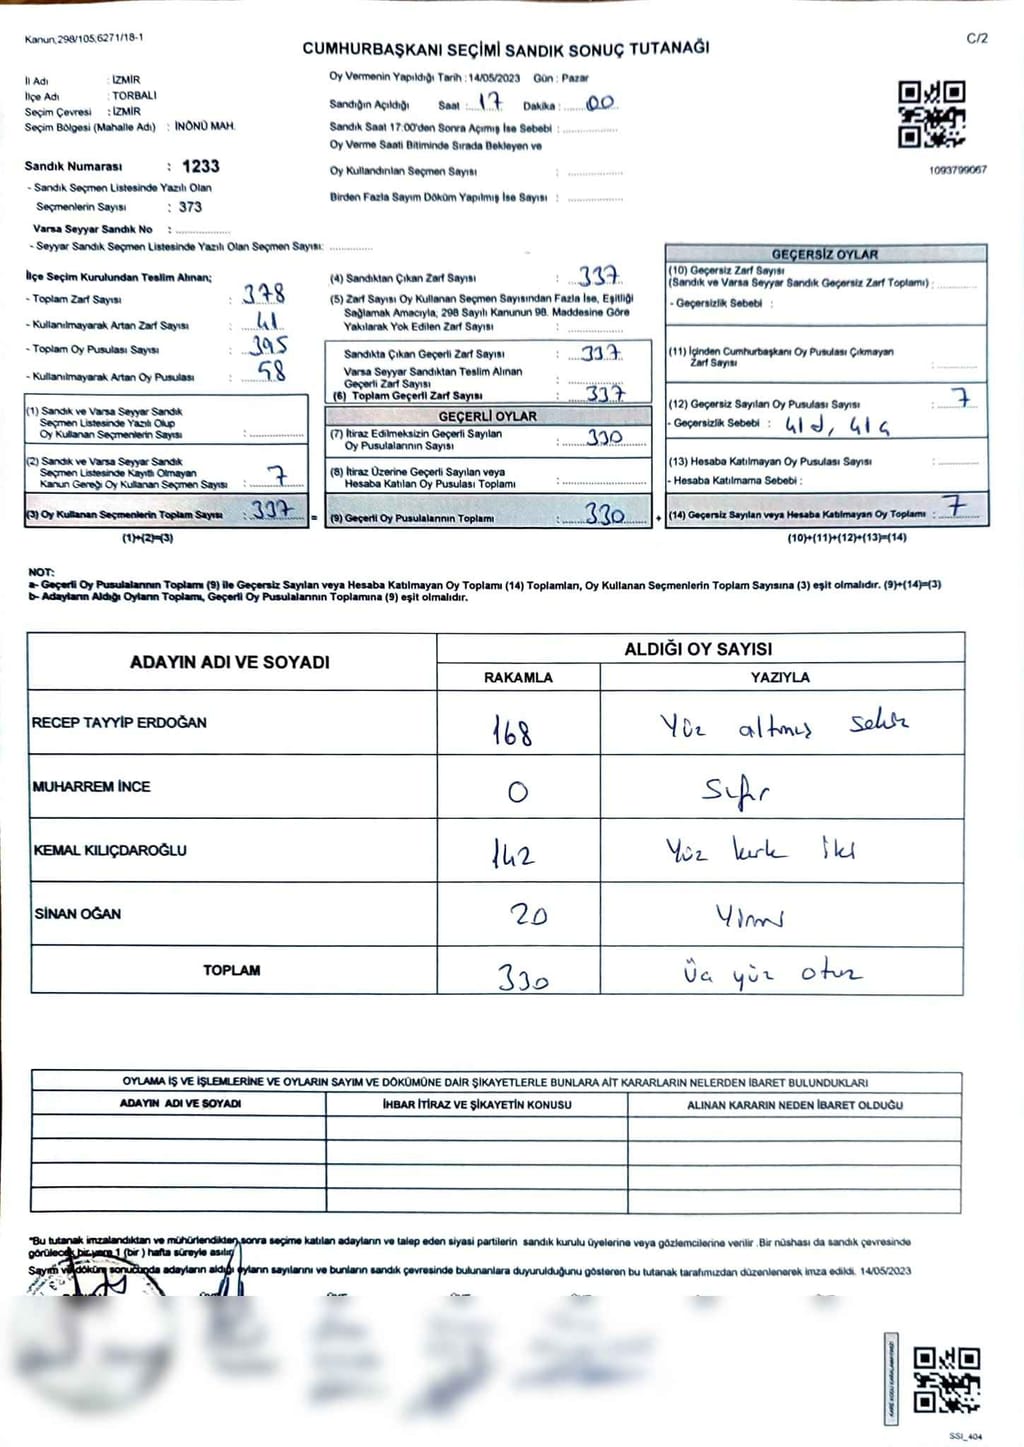 Kanun,298/105,6271/18-1
C/2
CUMHURBAŞKANI SEÇİMİ SANDIK SONUÇ TUTANAĞI
İl Adı : İZMİR
İlçe Adı : TORBALI
Seçim Çevresi : İZMİR
Seçim Bölgesi (Mahalle Adı) : İNÖNÜ MAH.
Sandık Numarası : 1233
- Sandık Seçmen Listesinde Yazılı Olan
Seçmenlerin Sayısı : 373
Varsa Seyyar Sandık No : ..............
- Seyyar Sandık Seçmen Listesinde Yazılı Olan Seçmen Sayısı: ............
Oy Vermenin Yapıldığı Tarih : 14/05/2023 Gün : Pazar
Sandığın Açıldığı Saat : 17 Dakika : 00
Sandık Saat 17:00'den Sonra Açımış İse Sebebi : ..............
Oy Verme Saati Bitiminde Sırada Bekleyen ve
Oy Kullandırılan Seçmen Sayısı : ..............
Birden Fazla Sayım Döküm Yapılmış İse Sayısı : ..............
1093799067
İlçe Seçim Kurulundan Teslim Alınan;
- Toplam Zarf Sayısı : 378
- Kullanılmayarak Artan Zarf Sayısı : 41
- Toplam Oy Pusulası Sayısı : 395
- Kullanılmayarak Artan Oy Pusulası : 58
(1) Sandık ve Varsa Seyyar Sandık
Seçmen Listesinde Yazılı Olup
Oy Kullanan Seçmenlerin Sayısı : ..............
(2) Sandık ve Varsa Seyyar Sandık
Seçmen Listesinde Kayıtlı Olmayan
Kanun Gereği Oy Kullanan Seçmen Sayısı : 7
(3) Oy Kullanan Seçmenlerin Toplam Sayısı : 337 =
(1)+(2)=(3)
(4) Sandıktan Çıkan Zarf Sayısı : 337
(5) Zarf Sayısı Oy Kullanan Seçmen Sayısından Fazla İse, Eşitliği
Sağlamak Amacıyla, 298 Sayılı Kanunun 98. Maddesine Göre
Yakılarak Yok Edilen Zarf Sayısı : ..............
Sandıkta Çıkan Geçerli Zarf Sayısı : 337
Varsa Seyyar Sandıktan Teslim Alınan
Geçerli Zarf Sayısı : ..............
(6) Toplam Geçerli Zarf Sayısı : 337
GEÇERLİ OYLAR
(7) İtiraz Edilmeksizin Geçerli Sayılan
Oy Pusulalarının Sayısı : 330
(8) İtiraz Üzerine Geçerli Sayılan veya
Hesaba Katılan Oy Pusulası Toplamı : ..............
(9) Geçerli Oy Pusulalarının Toplamı : 330 +
GEÇERSİZ OYLAR
(10) Geçersiz Zarf Sayısı
(Sandık ve Varsa Seyyar Sandık Geçersiz Zarf Toplamı) : ..............
- Geçersizlik Sebebi :
(11) İçinden Cumhurbaşkanı Oy Pusulası Çıkmayan
Zarf Sayısı : ..............
(12) Geçersiz Sayılan Oy Pusulası Sayısı : 7
- Geçersizlik Sebebi :
(13) Hesaba Katılmayan Oy Pusulası Sayısı : ..............
- Hesaba Katılmama Sebebi :
(14) Geçersiz Sayılan veya Hesaba Katılmayan Oy Toplamı : 7
(10)+(11)+(12)+(13)=(14)
NOT:
a- Geçerli Oy Pusulalarının Toplamı (9) ile Geçersiz Sayılan veya Hesaba Katılmayan Oy Toplamı (14) Toplamları, Oy Kullanan Seçmenlerin Toplam Sayısına (3) eşit olmalıdır. (9)+(14)=(3)
b- Adayların Aldığı Oyların Toplamı, Geçerli Oy Pusulalarının Toplamına (9) eşit olmalıdır.
ADAYIN ADI VE SOYADI
ALDIĞI OY SAYISI
RAKAMLA YAZIYLA
RECEP TAYYİP ERDOĞAN 168 Yüz altmış sekiz
MUHARREM İNCE 0 Sıfır
KEMAL KILIÇDAROĞLU 142 Yüz kırk iki
SİNAN OĞAN 20 Yirmi
TOPLAM 330 Üç yüz otuz
OYLAMA İŞ VE İŞLEMLERİNE VE OYLARIN SAYIM VE DÖKÜMÜNE DAİR ŞİKAYETLERLE BUNLARA AİT KARARLARIN NELERDEN İBARET BULUNDUKLARI
ADAYIN ADI VE SOYADI İHBAR İTİRAZ VE ŞİKAYETİN KONUSU ALINAN KARARIN NEDEN İBARET OLDUĞU
*Bu tutanak imzalandıktan ve mühürlendikten sonra seçime katılan adayların ve talep eden siyasi partilerin sandık kurulu üyelerine veya gözlemcilerine verilir .Bir nüshası da sandık çevresinde
görülecek bir yere 1 (bir ) hafta süreyle asılır
Sayım ve döküm sonucunda adayların aldığı oyların sayılarını ve bunların sandık çevresinde bulunanlara duyurulduğunu gösteren bu tutanak tarafımızdan düzenlenerek imza edildi. 14/05/2023
SSI_404